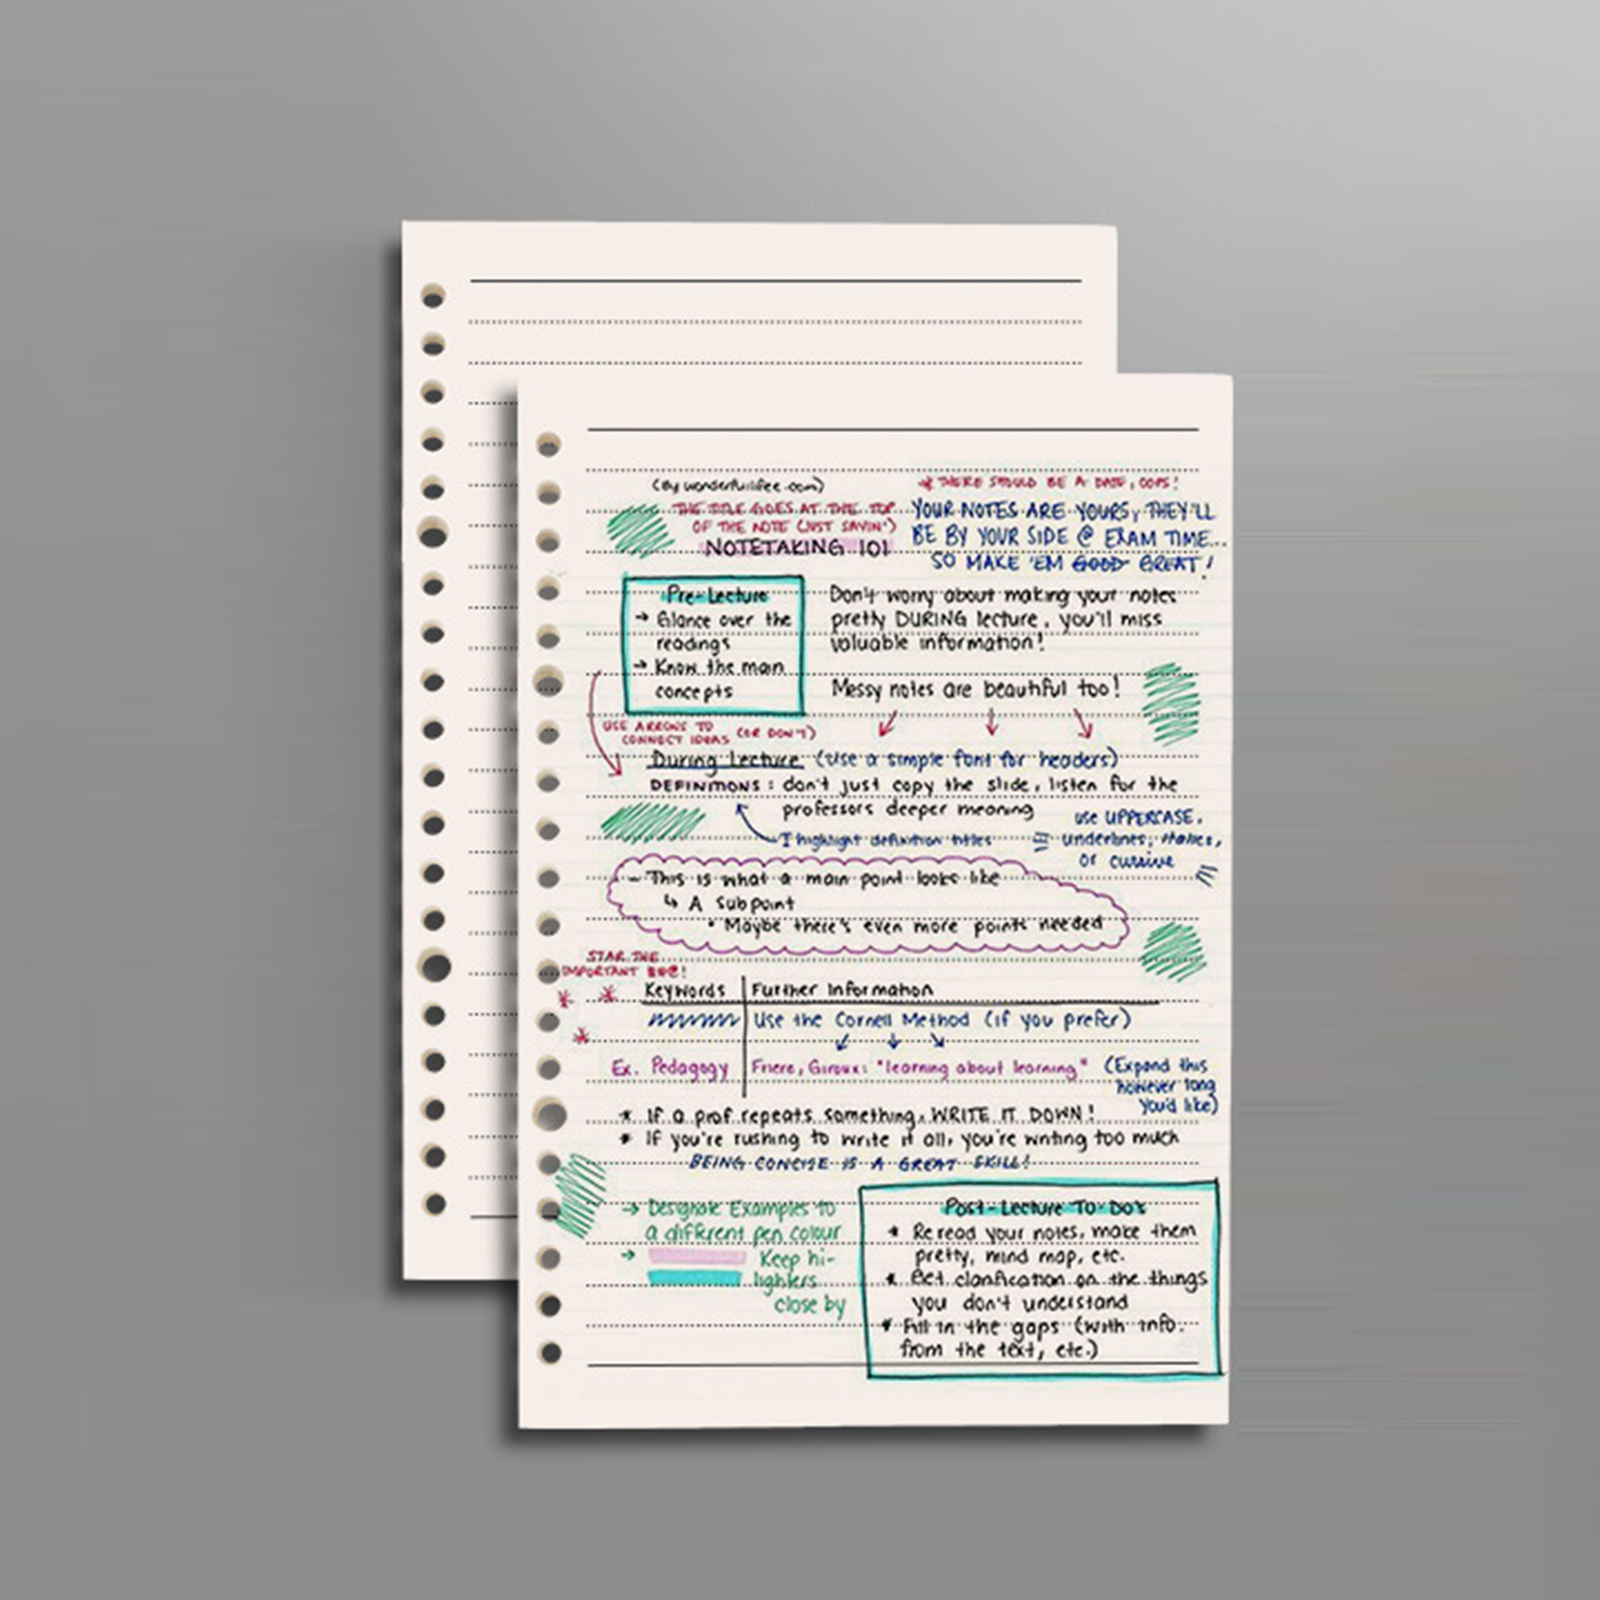 (By wonderfulifee.com)
* THERE SHOULD BE A DATE, OOPS!
THE TITLE GOES AT THE TOP
OF THE NOTE (JUST SAYIN')
NOTETAKING 101
YOUR NOTES ARE YOURS, THEY'LL
BE BY YOUR SIDE @ EXAM TIME...
SO MAKE 'EM GOOD GREAT!
Pre-Lecture
→ Glance over the
readings
→ Know the main
concepts
Don't worry about making your notes
pretty DURING lecture, you'll miss
valuable information!
Messy notes are beautiful too!
USE ARROWS TO
CONNECT IDEAS (OR DON'T)
During Lecture (use a simple font for headers)
DEFINITIONS: don't just copy the slide, listen for the
professors deeper meaning
I highlight definition titles
use UPPERCASE,
underlines, italics,
or cursive
- This is what a main point looks like
↳ A subpoint
• Maybe there's even more points needed
STAR THE
IMPORTANT
Keywords
Further Information
Use the Cornell Method (if you prefer)
Ex. Pedagogy
Friere, Giroux: "learning about learning"
(Expand this
however long
you'd like)
* If a prof repeats something, WRITE IT DOWN!
* If you're rushing to write it all, you're writing too much
BEING CONCISE IS A GREAT SKILL!
→ Designate Examples to
a different pen colour
→ Keep hi-
lighters
close by
Post-Lecture To-Do's
* Reread your notes, make them
pretty, mind map, etc.
* Get clarification on the things
you don't understand
* Fill in the gaps (with info.
from the text, etc.)